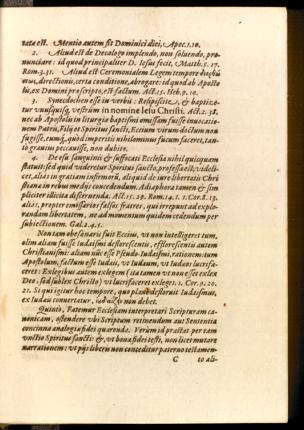 rata est. Mentio autem fit Dominici diei, Apoc. 1.10.
2. Aliud est de Decalogo implendo, non soluendo, pro-
nunciare: id quod principaliter D. Iesus fecit, Matth. 5. 17.
Rom. 3.31. Aliud est Ceremonialem Legem tempore
certa conditione, abrogare: id quod ab Aposto
lis, ex Domini præscripto, est factum. Act. 15. Heb. 9. 10.
3. Synecdochen esse in verbis: Resipiscite, & baptize-
tur vnusquisq; vestrûm in nomine Iesu Christi. Act. 2. 38.
nec ab Apostolis in liturgia baptismi omissam fuisse inuocatio-
nem Patris, Filij et Spiritus sancti, Eccium virum doctum non
fugisse, quod imperitis nihilominus fucum faceret, tan-
to grauius peccauisse, non dubito.
4. De esu sanguinis & suffocati Ecclesia nihil quicquam
statuit: sed quid videretur Spiritui sancto, professa est: videli-
cet, alias in gratiam infirmorũ, aliquid de iure libertatis Chri
stianæ in rebus medijs concedendum. Adiaphora tamen & sim
pliciter illicita discernenda. Act. 15. 29. Rom. 14. 1. 1. Cor. 8. 13.
aliàs, propter emissarios falsos fratres, qui irrepunt ad explo-
randam libertatem, ne ad momentum quidem cedendum per
subiectionem. Gal. 2. 4. 5.
Non tam obesa naris fuit Eccius, vt non intelligeret tum,
olim aliam fuisse Iudaismi deflorescentis, efflorescentis autem
Christianismi: aliam nũc esse Pseudo-Iudaismi, rationem: tum
Apostolum, factum esse Iudæis, vt Iudæum, vt Iudæos lucrifa-
ceret: Exlegibus autem exlegem (ita tamen vt non esset exlex
Deo, sed subiex Christo) vt lucrifaceret exleges. 1. Cor. 9. 20.
21. Si quis igitur hoc tempore, quo planè defloruit Iudaismus,
ex Iudæis conuertatur, non debet.
Quintò, Fatemur Ecclesiam interpretari Scripturam ca-
nonicam, ostendere vbi Scriptum retinendum aut Sententia
concinna analogia fidei quærenda. Verùm id præstat per tam
vnctio Spiritus sancti: & vt bona fides testi, non licet mutare
narrationem: vt pijs liberis non conceditur paterno testamen-
C to ali-